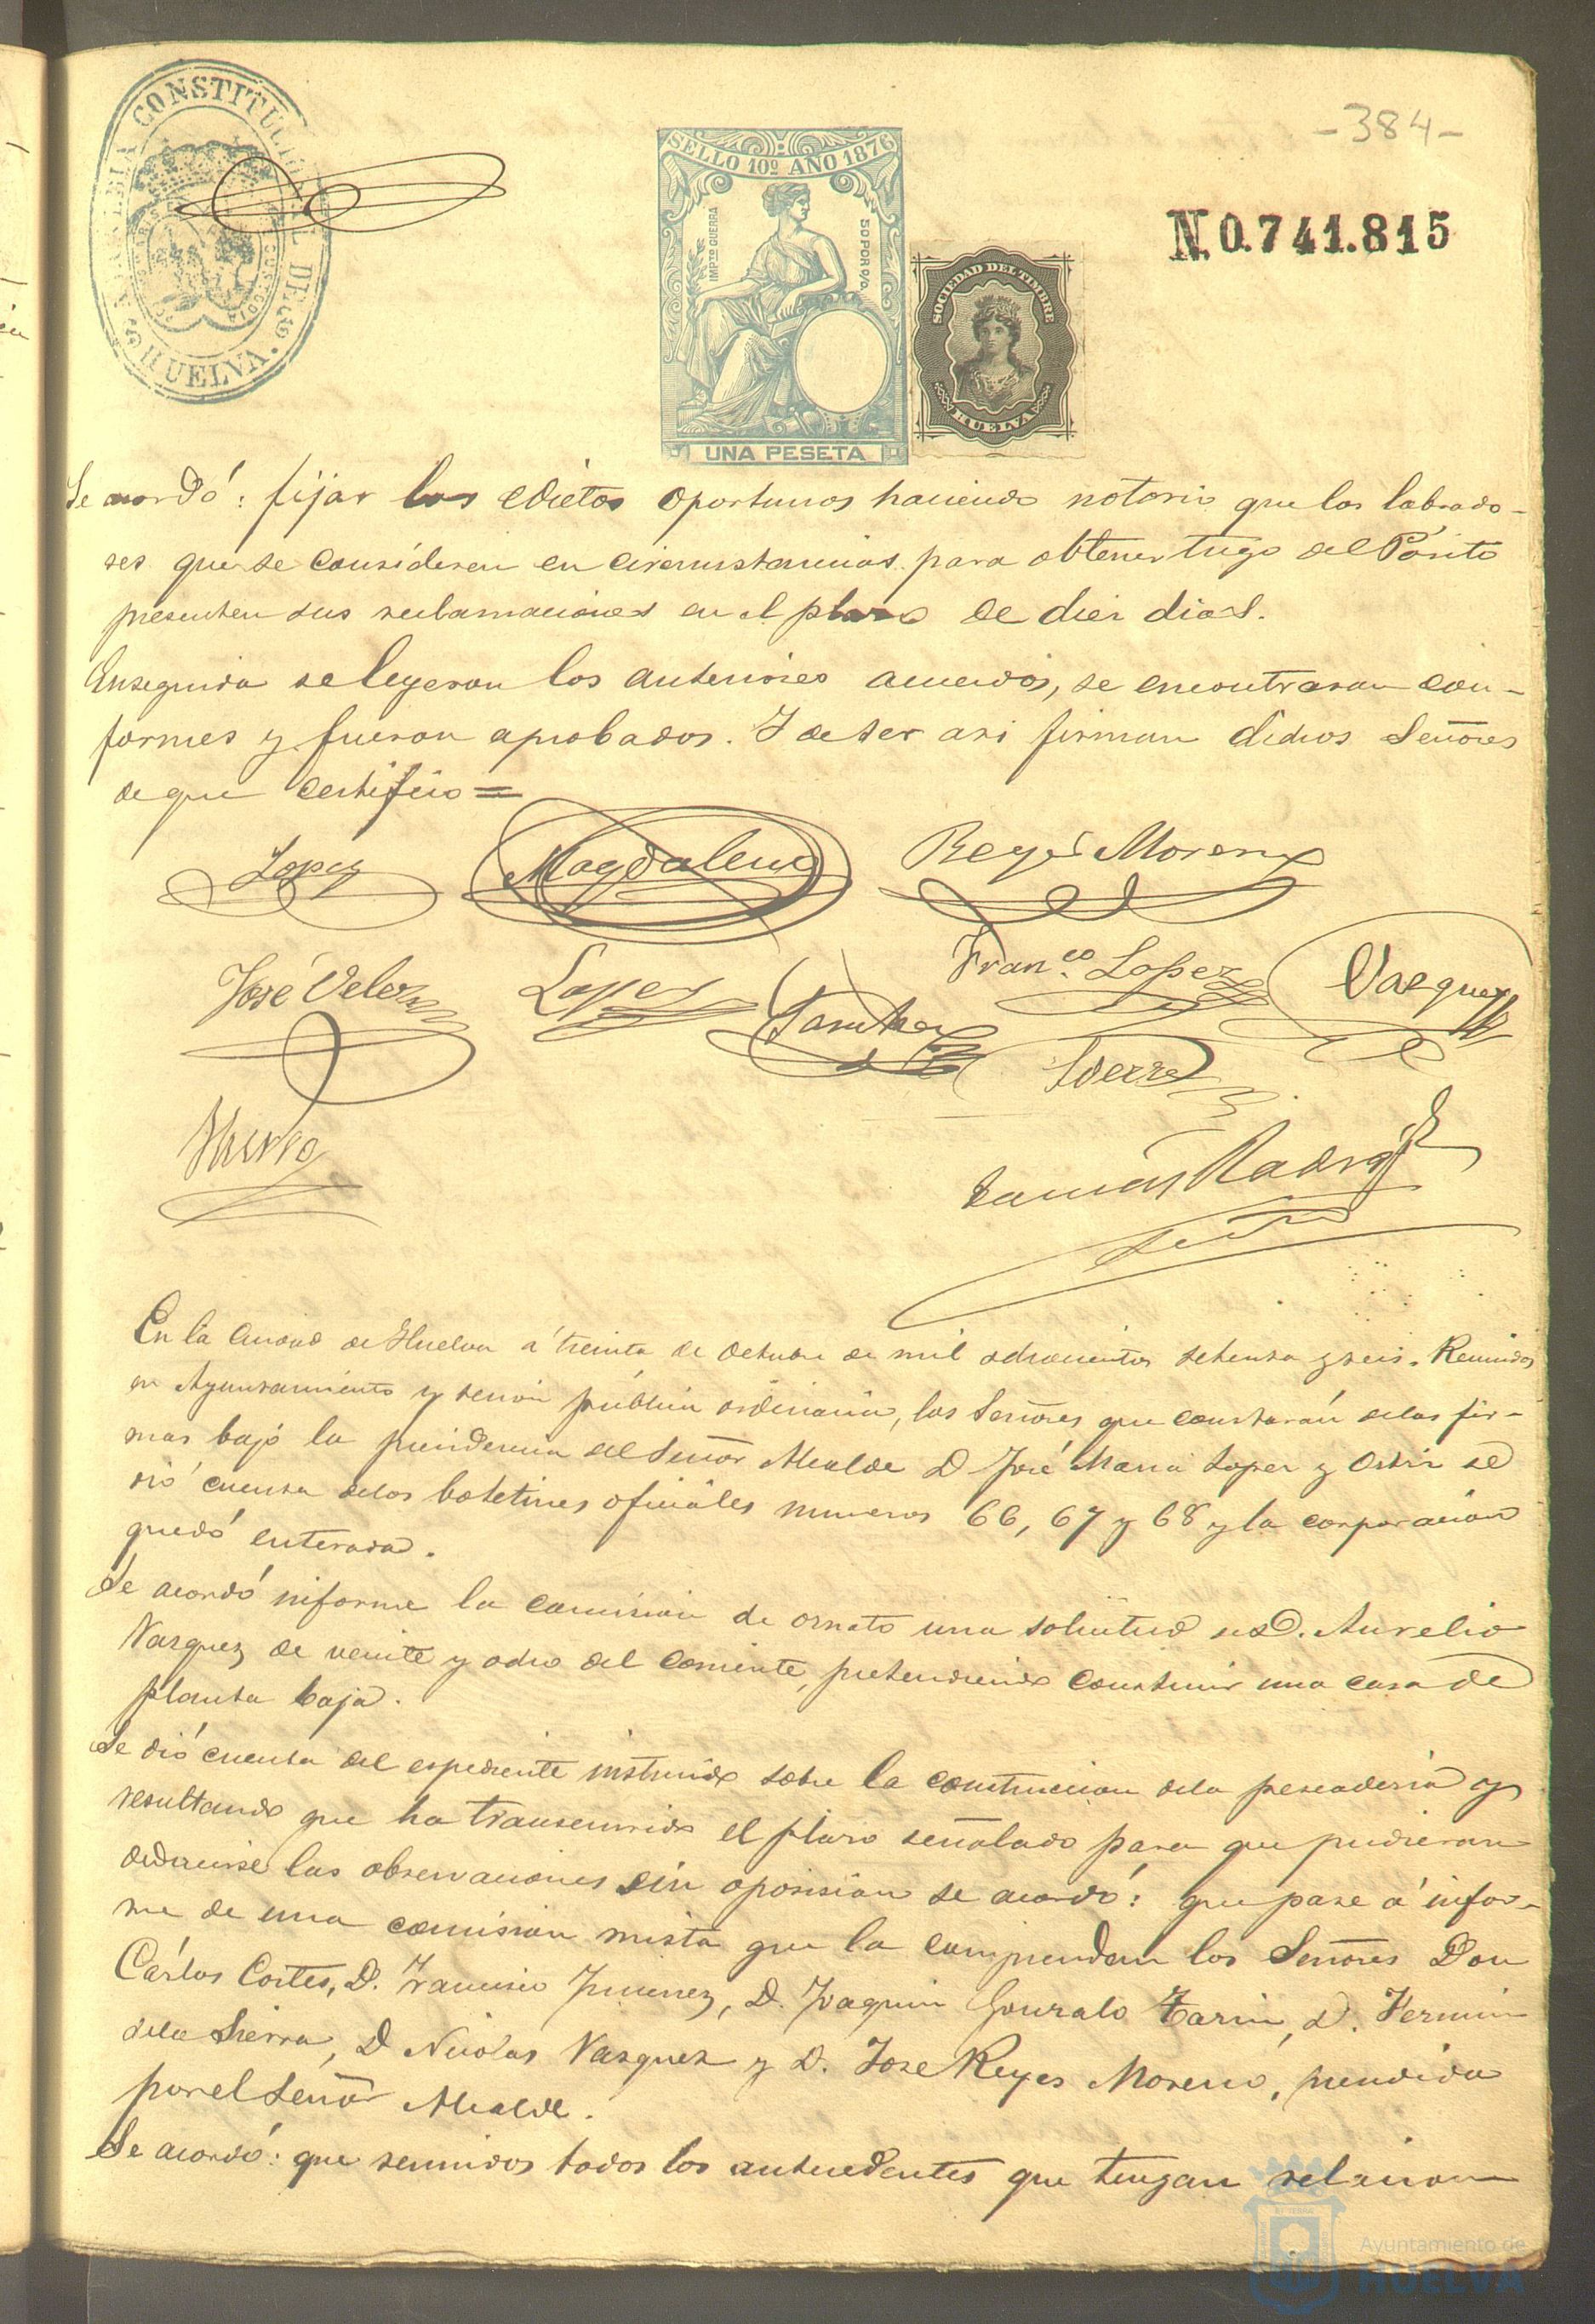 -384-
ALCALDIA CONSTITUCIONAL DE HUELVA
SELLO 10º AÑO 1876
IMPTO GUERRA
50 POR 0/0
UNA PESETA
SOCIEDAD DEL TIMBRE
HUELVA
N. 0.741.815
Se acordó: fijar los edictos oportunos haciendo notorio que los labrado-
res que se consideren en circunstancias para obtener trigo del Pósito
presenten sus reclamaciones en el plazo de diez dias.
Enseguida se leyeron los anteriores acuerdos, se encontraron con-
formes y fueron aprobados. Y de ser asi firman dichos Señores
de que certifico =
Lopez Magdalena Reyes Moreno
José Velez Lopez Sanchez Franco. Lopez Vazquez
Sierra
Tomás Rodrig
En la Ciudad de Huelva á treinta de Octubre de mil ochocientos setenta y seis. Reunidos
en Ayuntamiento y sesion pública ordinaria, los Señores que constarán delas fir-
mas bajo la presidencia del Señor Alcalde D José Maria Lopez y Ortiz se
dió cuenta delos boletines oficiales numeros 66, 67 y 68 y la corporacion
quedó enterada.
Se acordó informe la comision de ornato una solicitud de D. Aurelio
Vazquez de veinte y ocho del corriente, pretendiendo construir una casa de
planta baja.
Se dió cuenta del espediente instruido sobre la construccion dela pescaderia y
resultando que ha transcurrido el plazo señalado para que pudieran
deducirse las observaciones sin oposision se acordó: que pase á infor-
me de una comision mista que la comprendan los Señores Don
Cárlos Cortes, D. Francisco Jimenez, D. Joaquin Gonzalo Tarin, D. Fermin
dela Sierra, D Nicolas Vazquez y D. Jose Reyes Moreno, presidida
por el Señor Alcalde.
Se acordó: que reunidos todos los antecedentes que tengan relacion
Ayuntamiento de
HUELVA